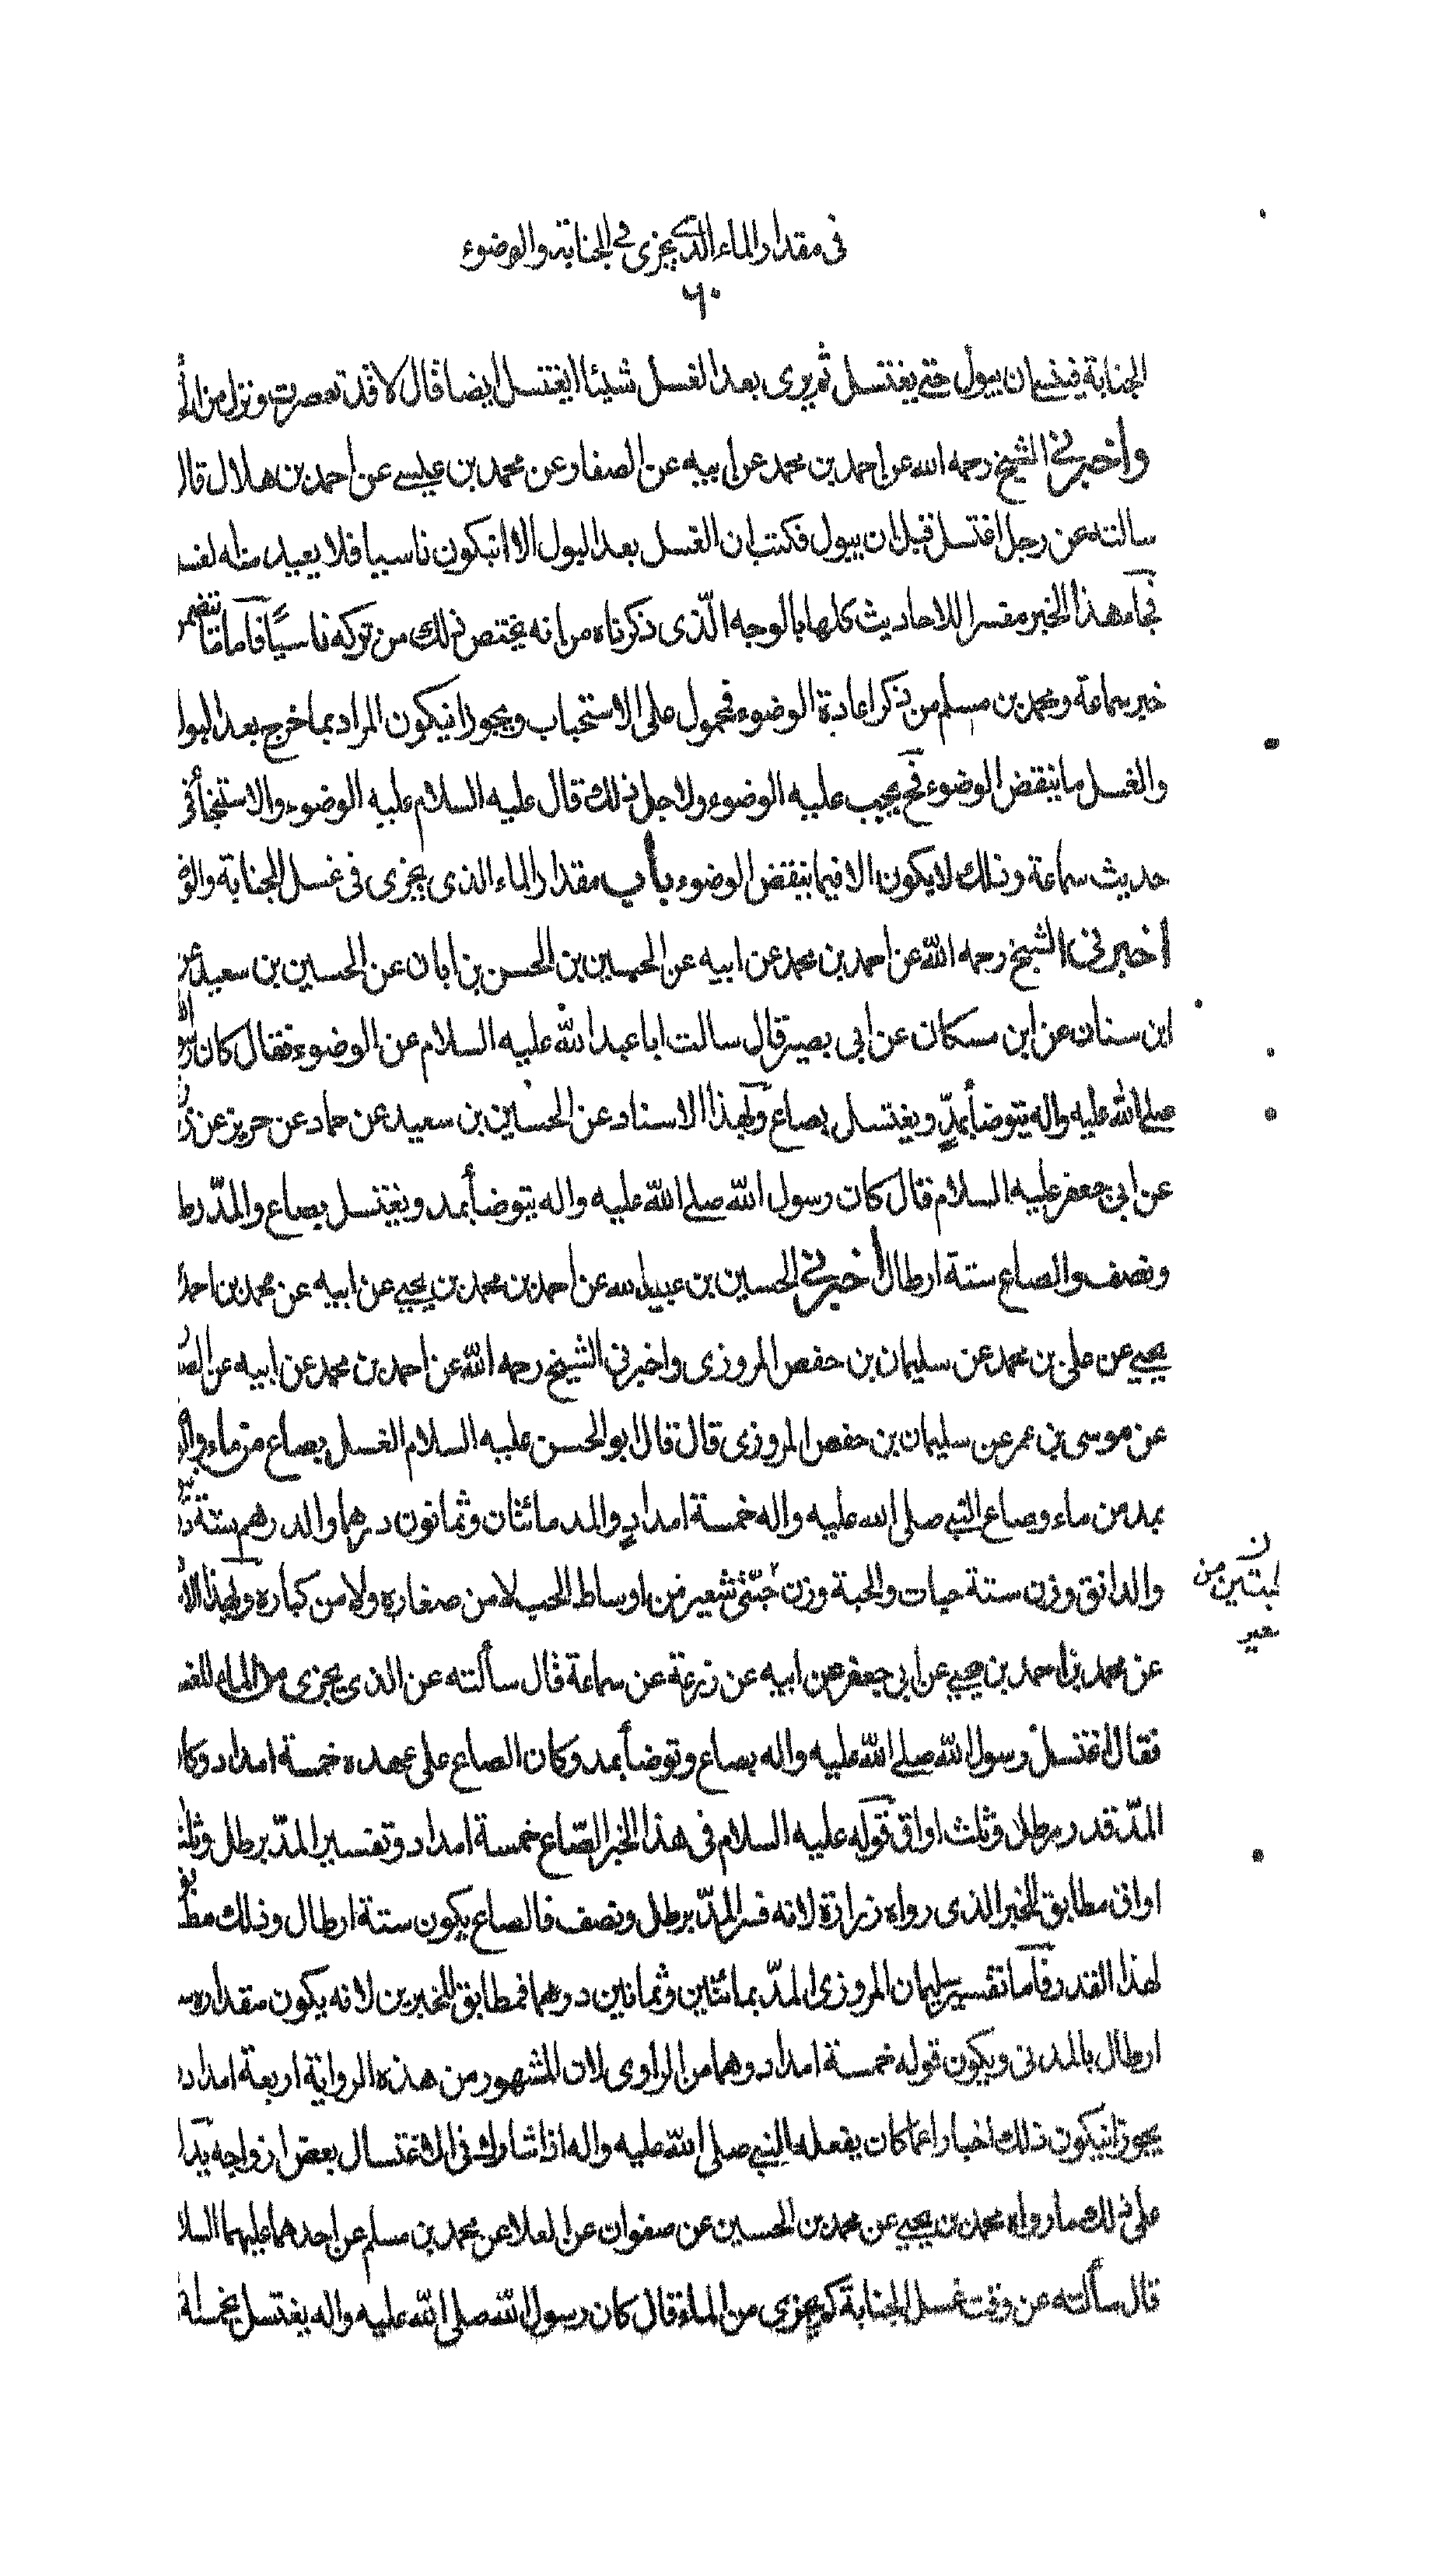 فى مقدار الماء الذى يجزى فى الجنابة والوضوء
٦٠
الجنابة فينسى ان يبول حتى يغتسل ثم يرى بعد الغسل شيئا ايغتسل ايضا قال لا قد تعصرت ونزل من
واخبرنى الشيخ رحمه الله عن احمد بن محمد عن ابيه عن الصفار عن محمد بن عيسى عن احمد بن هلال قال
سالته عن رجل اغتسل قبل ان يبول فكتب ان الغسل بعد البول الا انيكون ناسيا فلا يعيد منه
فجاء هذا الخبر مفسرا للاحاديث كلها بالوجه الّذى ذكرناه من انه يختص ذلك من تركه ناسيًا فاما ما تتضمن
خبر سماعة ومحمد بن مسلم من ذكر اعادة الوضوء فمحمول على الاستحباب ويجوز انيكون المراد بما خرج بعد البول
والغسل ما ينقض الوضوء فح يجب عليه الوضوء ولاجل ذلك قال عليه السلام عليه الوضوء والاستنجاء فى
حديث سماعة وذلك لا يكون الا فيما ينقض الوضوء باب مقدار الماء الذى يجزى فى غسل الجنابة
اخبرنى الشيخ رحمه اللّه عن احمد بن محمد عن ابيه عن الحسين بن الحسن بن ابان عن الحسين بن سعيد عن
ابن سنان عن ابن مسكان عن ابى بصير قال سالت ابا عبد اللّه عليه السلام عن الوضوء فقال كان رسول الله
صلى اللّه عليه واله يتوضأ بمدٍّ ويغتسل بصاع وبهذا الاسناد عن الحسين بن سعيد عن حماد عن حريز عن
عن ابى جعفر عليه السلام قال كان رسول اللّه صلى اللّه عليه واله يتوضأ بمد ويغتسل بصاع والمدّ
ونصف والصاع ستة ارطال أخبرنى الحسين بن عبيد الله عن احمد بن محمد بن يحيى عن ابيه عن محمد بن احمد
يحيى عن على بن محمد عن سليمان بن حفص المروزى واخبرنى الشيخ رحمه اللّه عن احمد بن محمد عن ابيه عن
عن موسى بن عمر عن سليمان بن حفص المروزى قال قال ابو الحسن عليه السلام الغسل بصاع من ماء
بمد من ماء وصاع النبى صلى الله عليه واله خمسة امدادٍ والمد مائتان وثمانون درهما والدرهم ستة
والدانق وزن ستة حبات والحبة وزن حبّتى شعير من اوساط الحب لا من صغاره ولا من كباره وبهذا
عن محمد بن احمد بن يحيى عن ابى جعفر عن ابيه عن زرعة عن سماعة قال سألته عن الذى يجزى من الماء
فقال اغتسل رسول اللّه صلى اللّه عليه واله بصاع وتوضأ بمد وكان الصاع على عهده خمسة امداد وكان
المدّ قدر رطل وثلث اواق قوله عليه السلام فى هذا الخبر الصّاع خمسة امداد وتفسير المدّ برطل وثلث
اواق مطابق للخبر الذى رواه زرارة لانه فسر المدّ برطل ونصف فالصاع يكون ستة ارطال وذلك
لهذا القدر فاما تفسير سليمان المروزى المدّ بمائتين وثمانين درهما فمطابق للخبرين لانه يكون مقداره
ارطال بالمدنى ويكون قوله خمسة امداد وهما من الراوى لان المشهور من هذه الرواية اربعة امداد
يجوز انيكون ذلك اخبارا عما كان يفعله النبى صلى اللّه عليه واله اذا شارك فى الاغتسال بعض ازواجه يدل
على ذلك ما رواه محمد بن يحيى عن محمد بن الحسين عن صفوان عن العلا عن محمد بن مسلم عن احدهما عليهما
قال سألته عن وقت غسل الجنابة كم يجزى من الماء قال كان رسول اللّه صلى اللّه عليه واله يغتسل بخمسة